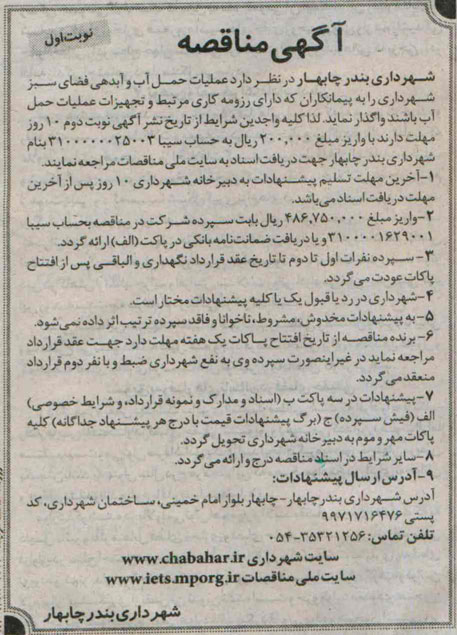 نوبت اول
آگهی مناقصه
شهرداری بندر چابهار در نظر دارد عملیات حمل آب و آبدهی فضای سبز
شهرداری را به پیمانکاران که دارای رزومه کاری مرتبط و تجهیزات عملیات حمل
آب باشند واگذار نماید. لذا کلیه واجدین شرایط از تاریخ نشر آگهی نوبت دوم ۱۰ روز
مهلت دارند با واریز مبلغ ۲۰۰,۰۰۰ ریال به حساب سیبا ۳۱۰۰۰۰۰۰۲۵۰۰۳ بنام
شهرداری بندر چابهار جهت دریافت اسناد به سایت ملی مناقصات مراجعه نمایند.
۱-آخرین مهلت تسلیم پیشنهادات به دبیرخانه شهرداری ۱۰ روز پس از آخرین
مهلت دریافت اسناد می‌باشد.
۲-واریز مبلغ ۴۸۶,۷۵۰,۰۰۰ ریال بابت سپرده شرکت در مناقصه بحساب سیبا
۳۱۰۰۰۰۱۶۲۹۰۰۱ و یا دریافت ضمانت نامه بانکی در پاکت (الف) ارائه گردد.
۳- سپرده نفرات اول تا دوم تا تاریخ عقد قرارداد نگهداری و الباقی پس از افتتاح
پاکات عودت می‌گردد.
۴-شهرداری در رد یا قبول یک یا کلیه پیشنهادات مختار است.
۵- به پیشنهادات مخدوش، مشروط، ناخوانا و فاقد سپرده ترتیب اثر داده نمی‌شود.
۶- برنده مناقصه از تاریخ افتتاح پاکات یک هفته مهلت دارد جهت عقد قرارداد
مراجعه نماید در غیر اینصورت سپرده وی به نفع شهرداری ضبط و با نفر دوم قرارداد
منعقد می‌گردد.
۷-پیشنهادات در سه پاکت ب (اسناد و مدارک و نمونه قرارداد، و شرایط خصوصی)
الف (فیش سپرده) ج (برگ پیشنهادات قیمت با درج هر پیشنهاد جداگانه) کلیه
پاکات مهر و موم به دبیرخانه شهرداری تحویل گردد.
۸-سایر شرایط در اسناد مناقصه درج و ارائه می‌گردد.
۹-آدرس ارسال پیشنهادات:
آدرس شهرداری بندر چابهار- چابهار بلوار امام خمینی، ساختمان شهرداری، کد
پستی ۹۹۷۱۷۱۶۴۷۶
تلفن تماس: ۳۵۳۲۱۲۵۶-۰۵۴
سایت شهرداری www.chabahar.ir
سایت ملی مناقصات www.iets.mporg.ir
شهرداری بندر چابهار